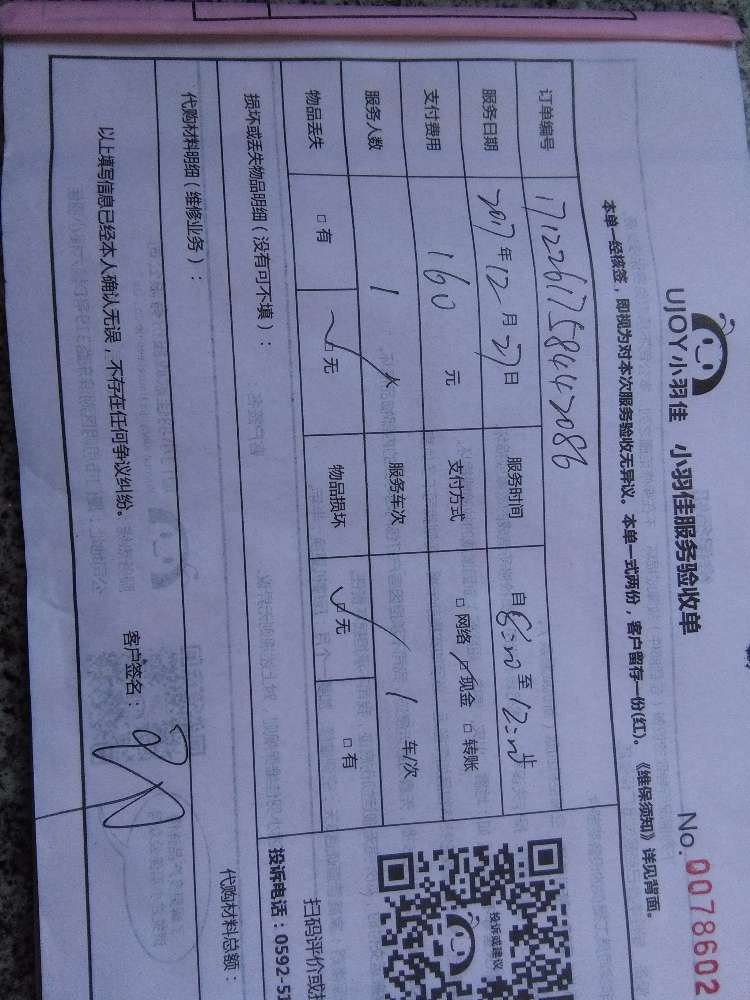 UJOY小羽佳 小羽佳服务验收单
No.0078602
本单一经核签，即视为对本次服务验收无异议。本单一式两份，客户留存一份(红)。《维保须知》详见背面。
订单编号 17122617584442086
服务日期 2017年12月27日 服务时间 自8:00至12:00止
支付费用 160元 支付方式 □网络 ☑现金 □转账
服务人数 1人 服务车次 1车/次
物品丢失 □有 ☑无 物品损坏 ☑无 □有
损坏或丢失物品明细（没有可不填）：
代购材料明细（维修业务）：
代购材料总额：
以上填写信息已经本人确认无误，不存在任何争议纠纷。 客户签名：
投诉或建议
扫码评价或
投诉电话：0592-5